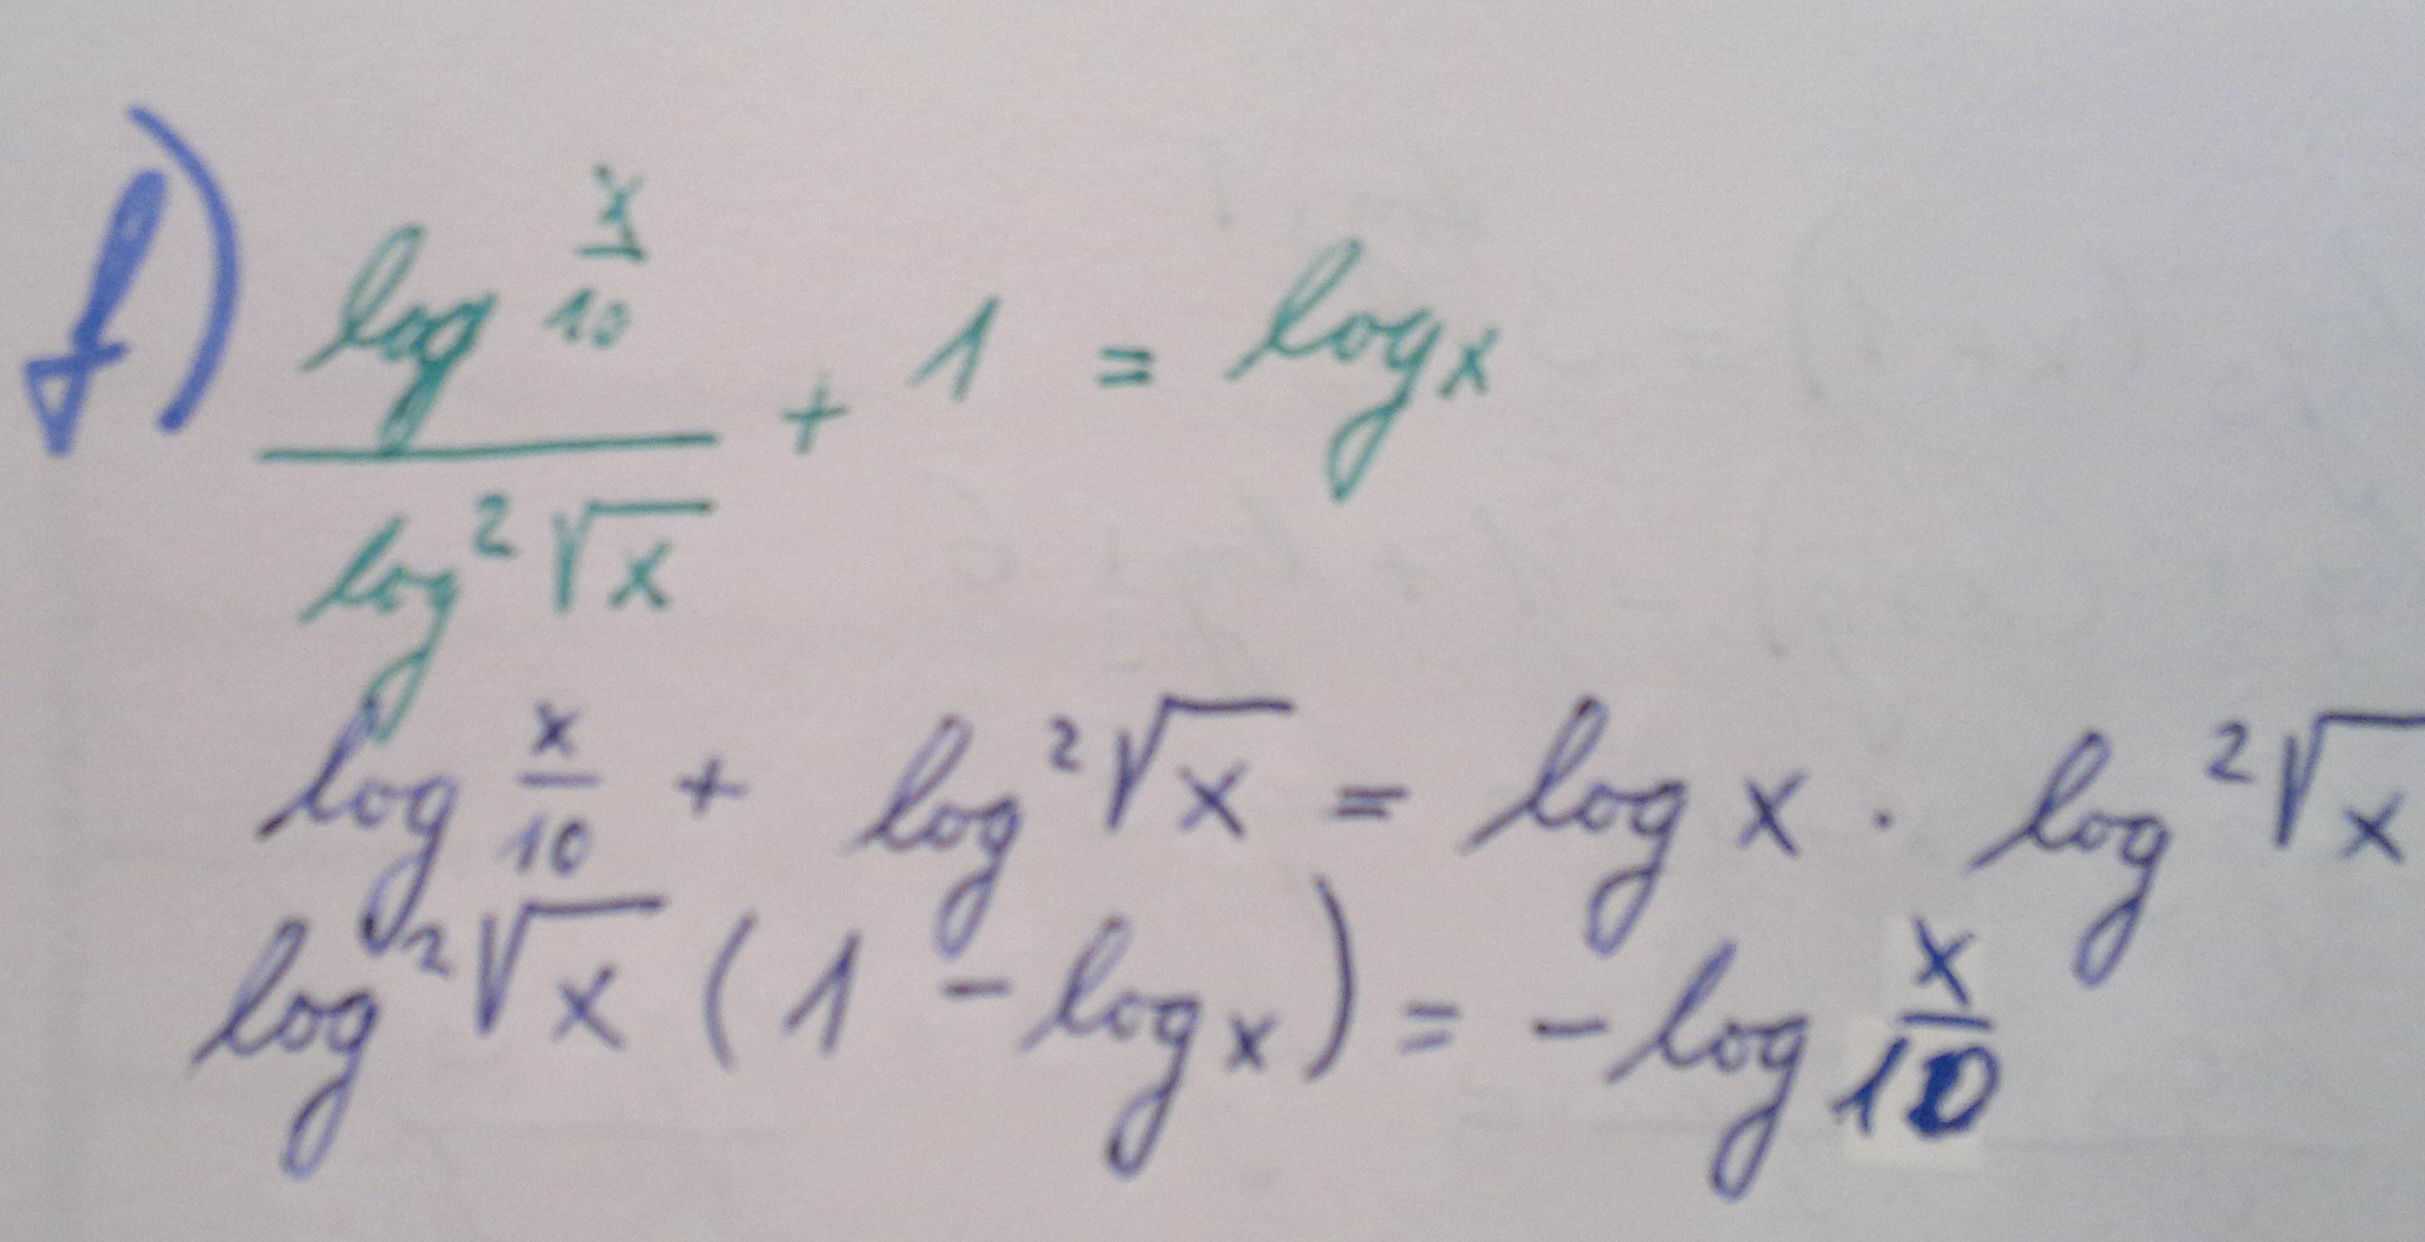 f) log x/10 / log² √x + 1 = log x
log x/10 + log² √x = log x · log² √x
log² √x (1 - log x) = - log x/10